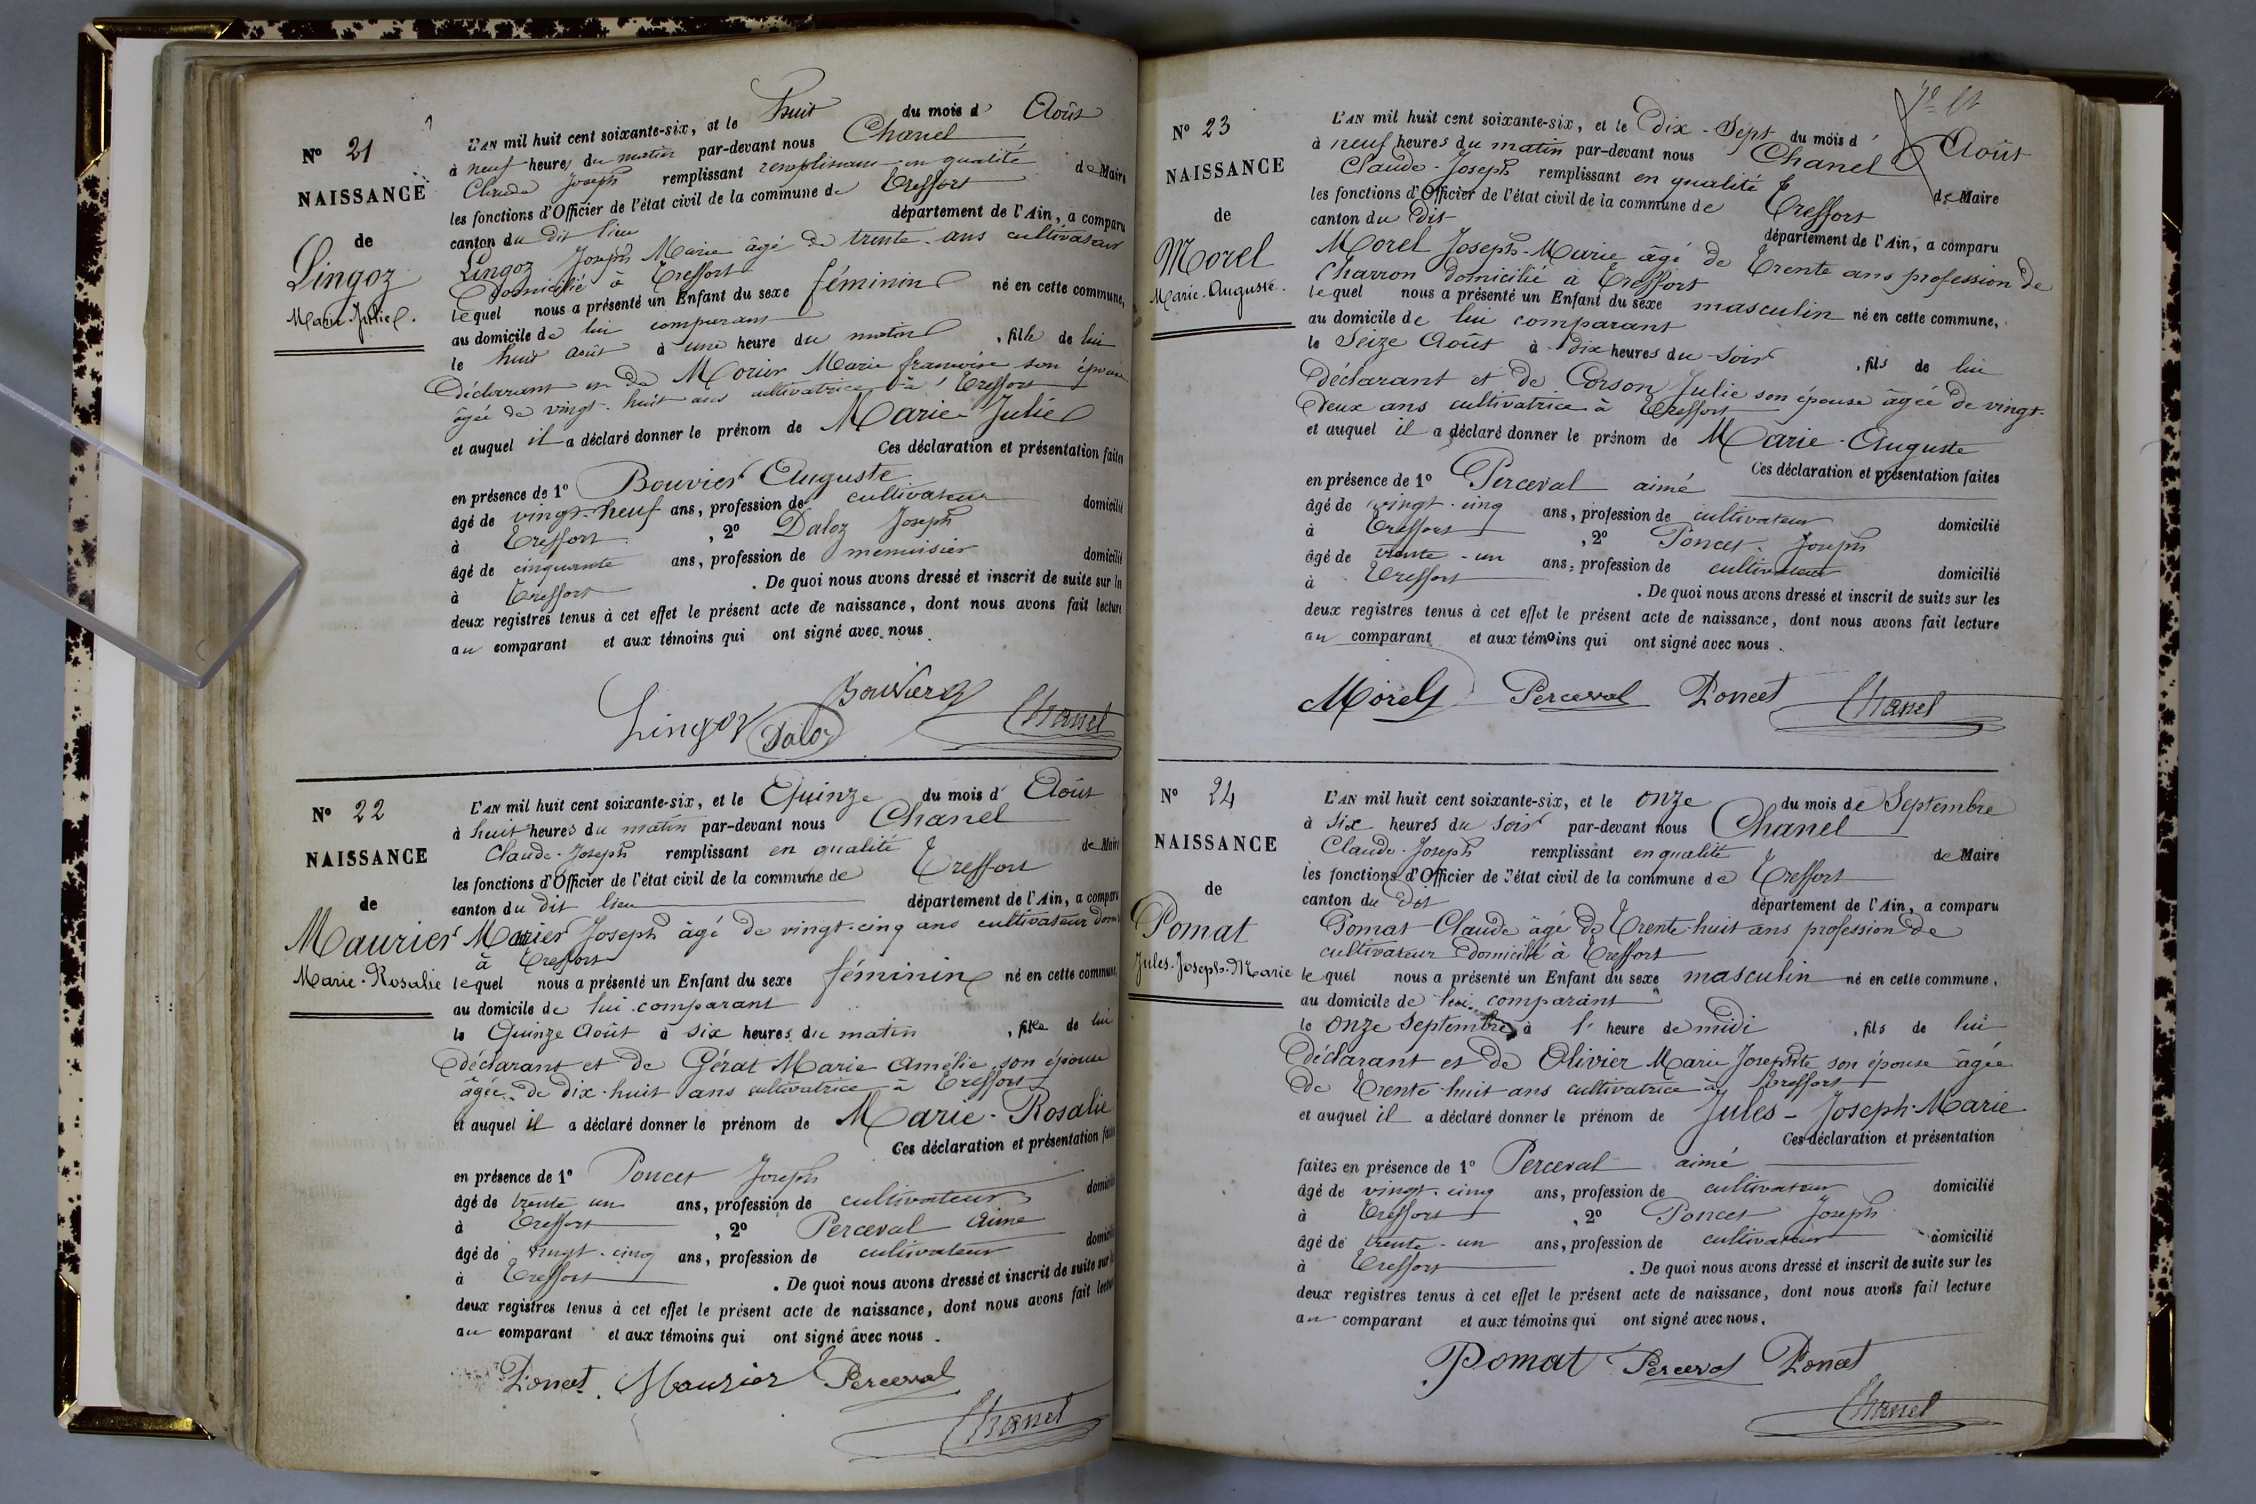 N° 21
NAISSANCE
de
Lingoz
Marie-Julie.
L'AN mil huit cent soixante-six, et le huit du mois d' Août
à neuf heures du matin par-devant nous Chanel
Claude Joseph remplissant remplissant en qualité de Maire
les fonctions d'Officier de l'état civil de la commune de Treffort
canton du dit lieu département de l'Ain, a comparu
Lingoz Joseph Marie âgé de trente ans cultivateur
Domicilié à Treffort
lequel nous a présenté un Enfant du sexe féminin né en cette commune,
au domicile de lui comparant
le huit août à une heure du matin, fille de lui
Déclarant et de Morier Marie françoise son épouse
âgée de vingt-huit ans cultivatrice à Treffort
et auquel il a déclaré donner le prénom de Marie Julie
Ces déclaration et présentation faites
en présence de 1° Bouvier Auguste
âgé de vingt-neuf ans, profession de cultivateur domicilié
à Treffort, 2° Daloz Joseph
âgé de cinquante ans, profession de menuisier domicilié
à Treffort. De quoi nous avons dressé et inscrit de suite sur les
deux registres tenus à cet effet le présent acte de naissance, dont nous avons fait lecture
au comparant et aux témoins qui ont signé avec nous.
Bouvier
Lingoz Daloz Chanel
N° 22
NAISSANCE
de
Maurier
Marie-Rosalie
L'AN mil huit cent soixante-six, et le Quinze du mois d' Août
à huit heures du matin par-devant nous Chanel
Claude-Joseph remplissant en qualité de Maire
les fonctions d'Officier de l'état civil de la commune de Treffort
canton du dit lieu département de l'Ain, a comparu
Maurier Joseph âgé de vingt-cinq ans cultivateur domi
à Treffort
lequel nous a présenté un Enfant du sexe féminin né en cette commune,
au domicile de lui comparant
le Quinze Août à six heures du matin, fille de lui
déclarant et de Gérat Marie Amélie son épouse
âgée de dix-huit ans cultivatrice à Treffort
et auquel il a déclaré donner le prénom de Marie-Rosalie
Ces déclaration et présentation faites
en présence de 1° Poncet Joseph
âgé de trente un ans, profession de cultivateur domicilié
à Treffort, 2° Perceval Aimé
âgé de vingt-cinq ans, profession de cultivateur domicilié
à Treffort. De quoi nous avons dressé et inscrit de suite sur les
deux registres tenus à cet effet le présent acte de naissance, dont nous avons fait lecture
au comparant et aux témoins qui ont signé avec nous.
Poncet. Maurier Perceval
Chanel
N° 23
NAISSANCE
de
Morel
Marie-Auguste.
L'AN mil huit cent soixante-six, et le Dix-Sept du mois d' Août
à neuf heures du matin par-devant nous Chanel
Claude-Joseph remplissant en qualité de Maire
les fonctions d'Officier de l'état civil de la commune de Treffort
canton du dit département de l'Ain, a comparu
Morel Joseph-Marie âgé de Trente ans profession de
Charron domicilié à Treffort
lequel nous a présenté un Enfant du sexe masculin né en cette commune,
au domicile de lui comparant
le Seize Août à dix heures du soir, fils de lui
Déclarant et de Corson Julie son épouse âgée de vingt-
deux ans cultivatrice à Treffort
et auquel il a déclaré donner le prénom de Marie-Auguste
Ces déclaration et présentation faites
en présence de 1° Perceval aimé
âgé de vingt-cinq ans, profession de cultivateur domicilié
à Treffort, 2° Poncet Joseph
âgé de trente-un ans, profession de cultivateur domicilié
à Treffort. De quoi nous avons dressé et inscrit de suite sur les
deux registres tenus à cet effet le présent acte de naissance, dont nous avons fait lecture
au comparant et aux témoins qui ont signé avec nous.
Morel Perceval Poncet Chanel
N° 24
NAISSANCE
de
Pomat
Jules-Joseph-Marie
L'AN mil huit cent soixante-six, et le onze du mois de Septembre
à six heures du soir par-devant nous Chanel
Claude-Joseph remplissant en qualité de Maire
les fonctions d'Officier de l'état civil de la commune de Treffort
canton du dit département de l'Ain, a comparu
Pomat Claude âgé de Trente-huit ans profession de
cultivateur domicilié à Treffort
lequel nous a présenté un Enfant du sexe masculin né en cette commune,
au domicile de lui comparant
le onze Septembre à 1' heure de midi, fils de lui
Déclarant et de Olivier Marie Josephte son épouse âgée
de Trente-huit ans cultivatrice à Treffort
et auquel il a déclaré donner le prénom de Jules-Joseph-Marie
Ces déclaration et présentation
faites en présence de 1° Perceval aimé
âgé de vingt-cinq ans, profession de cultivateur domicilié
à Treffort, 2° Poncet Joseph
âgé de trente-un ans, profession de cultivateur domicilié
à Treffort. De quoi nous avons dressé et inscrit de suite sur les
deux registres tenus à cet effet le présent acte de naissance, dont nous avons fait lecture
au comparant et aux témoins qui ont signé avec nous.
Pomat Perceval Poncet
Chanel